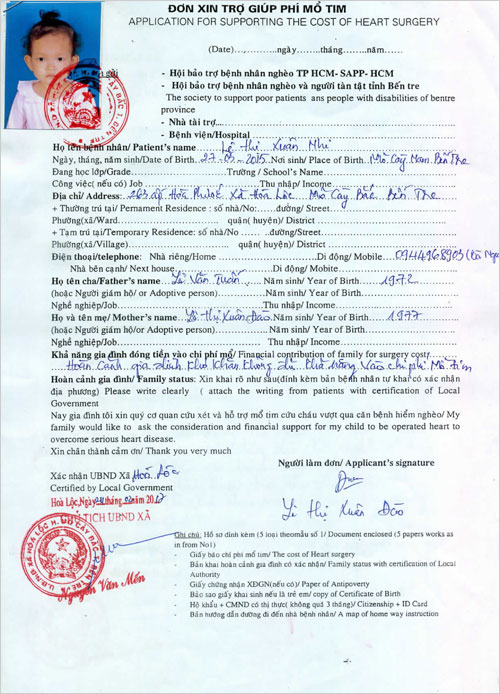 ĐƠN XIN TRỢ GIÚP PHÍ MỔ TIM
APPLICATION FOR SUPPORTING THE COST OF HEART SURGERY
(Date).........ngày.......tháng.......năm......
- Hội bảo trợ bệnh nhân nghèo TP HCM- SAPP- HCM
- Hội bảo trợ bệnh nhân nghèo và người tàn tật tỉnh Bến tre
The society to support poor patients ans people with disabilities of bentre
province
- Nhà tài trợ
- Bệnh viện/Hospital
Họ tên bệnh nhân/ Patient's name Lê Thị Xuân Nhi
Ngày, tháng, năm sinh/Date of Birth. 27-03-2015 Nơi sinh/ Place of Birth. Mỏ Cày Nam. Bến Tre
Đang học lớp/Grade Trường / School's Name
Công việc( nếu có) Job Thu nhập/ Income
Địa chỉ/ Address: 263 ấp Hòa Phước Xã Hòa Lộc Mỏ Cày Bắc Bến Tre
+ Thường trú tại/ Pemament Residence : số nhà/No: đường/ Street
Phường(xã/Ward quận( huyện)/ District
+ Tạm trú tại/Temporary Residence: số nhà/No đường/ Street
Phường(xã/Village) quận( huyện)/ District
Điện thoại/telephone: Nhà riêng/Home Di động/ Mobile 0944968903
Nhà bên cạnh/ Next house Di động/ Mobile
Họ tên cha/Father's name Lê Văn Tuấn Năm sinh/ Year of Birth 1972
(hoặc Người giám hộ/ or Adoptive person) Năm sinh/ Year of Birth
Nghề nghiệp/Job Thu nhập/ Income
Họ và tên mẹ/ Mother's name Lê thị Xuân Đào Năm sinh/ Year of Birth 1977
(hoặc Người giám hộ/ or Adoptive person) Năm sinh/ Year of Birth
Nghề nghiệp/Job Thu nhập/ Income
Khả năng gia đình đóng tiền vào chi phí mổ/ Financial contribution of family for surgery cost
Hoàn Cảnh gia đình Khó Khăn Không đủ Khả năng Vào chi phí Mổ Tim
Hoàn cảnh gia đình/ Family status: Xin khai rõ như sau(đính kèm bản bệnh nhân tự khai có xác nhận
địa phương) Please write clearly ( attach the writing from patients with certification of Local
Government
Nay gia đình tôi xin quý cơ quan cứu xét và hỗ trợ mổ tim cứu cháu vượt qua căn bệnh hiểm nghèo/ My
family would like to ask the consideration and financial support for my child to be operated heart to
overcome serious heart disease.
Xin chân thành cảm ơn/ Thank you very much
Người làm đơn/ Applicant's signature
Xác nhận UBND Xã Hoà Lộc
Certified by Local Government
Hoà Lộc, Ngày tháng 02 năm 2017
TỊCH UBND XÃ
Lê Thị Xuân Đào
Nguyễn Văn Mến
Ghi chú: Hồ sơ đính kèm (5 loại theo mẫu số 1/ Document enclosed (5 papers works as
in from No1)
- Giấy báo chi phí mổ tim/ The cost of Heart surgery
- Bản khai hoàn cảnh gia đình có xác nhận/ Family status with certification of Local
Authority
- Giấy chứng nhận XĐGN(nếu có)/ Paper of Antipoverty
- Bảo sao giấy khai sinh nếu là trẻ em/ copy of Certificate of Birth
- Hộ khẩu + CMND có thị thực( không quá 3 tháng)/ Citizenship + ID Card
- Bản hướng dẫn đường đi đến nhà bệnh nhân/ A map of home way instruction